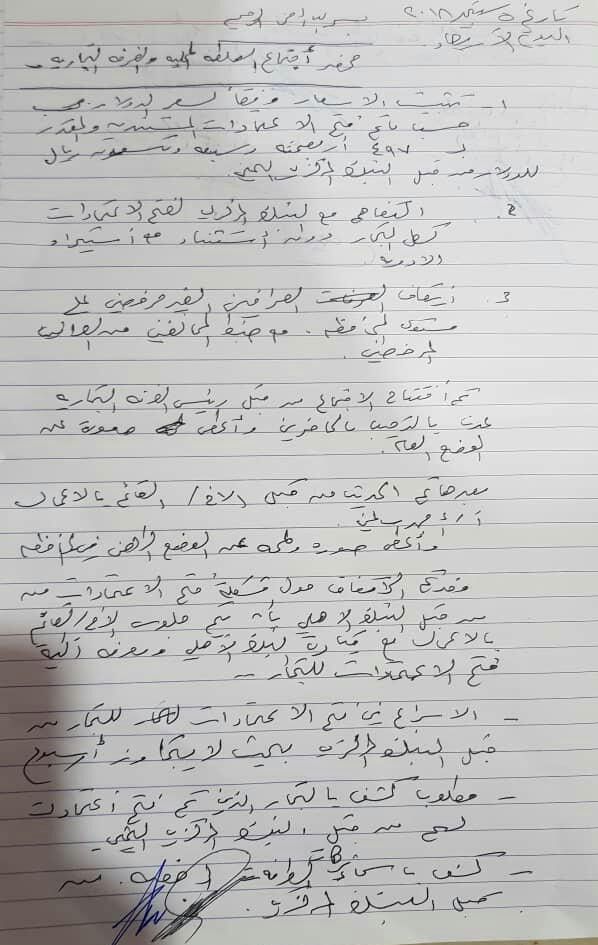 تاريخ ٥ سبتمبر ٢٠١٨
بسم الله الرحمن الرحيم
اليوم الأربعاء
محضر إجتماع السلطة المحلية والغرفة التجارية
١- تثبيت الاسعار وفقاً لسعر الدولار
حسب ما تم فتح الاعتمادات المستندية والمقدر
بـ ٤٩٧ أربعمئة وسبعة وتسعون ريال
للدولار من قبل البنك المركزي اليمني.
2. التفاهم مع البنك المركزي لفتح الاعتمادات
لكل التجار دون استثناء مع استيراد
الادوية.
3. إيقاف الصرافين الغير مرخصين على
مستوى المحافظة. مع ضبط المخالفين من الصرافين
المرخصين.
تم أفتتاح الاجتماع من قبل رئيس الغرفة التجارية
عدن بالترحيب بالحاضرين وأعطى صورة عن
الوضع العام.
بعدها تم الحديث من قبل الاخ/ القائم بالاعمال
وأعطى صورة عن الوضع الراهن في المحافظة
وقد تم الاتفاق حول مشكلة فتح الاعتمادات من
من قبل البنك الاهلي بأن يتم جلوس الأخ/القائم
بالاعمال مع قيادة البنك الأهلي ومعرفة آلية
فتح الاعتمادات للتجار -
- الاسراع في فتح الاعتمادات للتجار من
قبل البنك المركزي بحيث لا يتجاوز أسبوع
- مطلوب كشف بالتجار الذين تم فتح أعتمادات
لهم من قبل البنك المركزي اليمني
- كشف باسماء المرخصة من
قبل البنك المركزي.